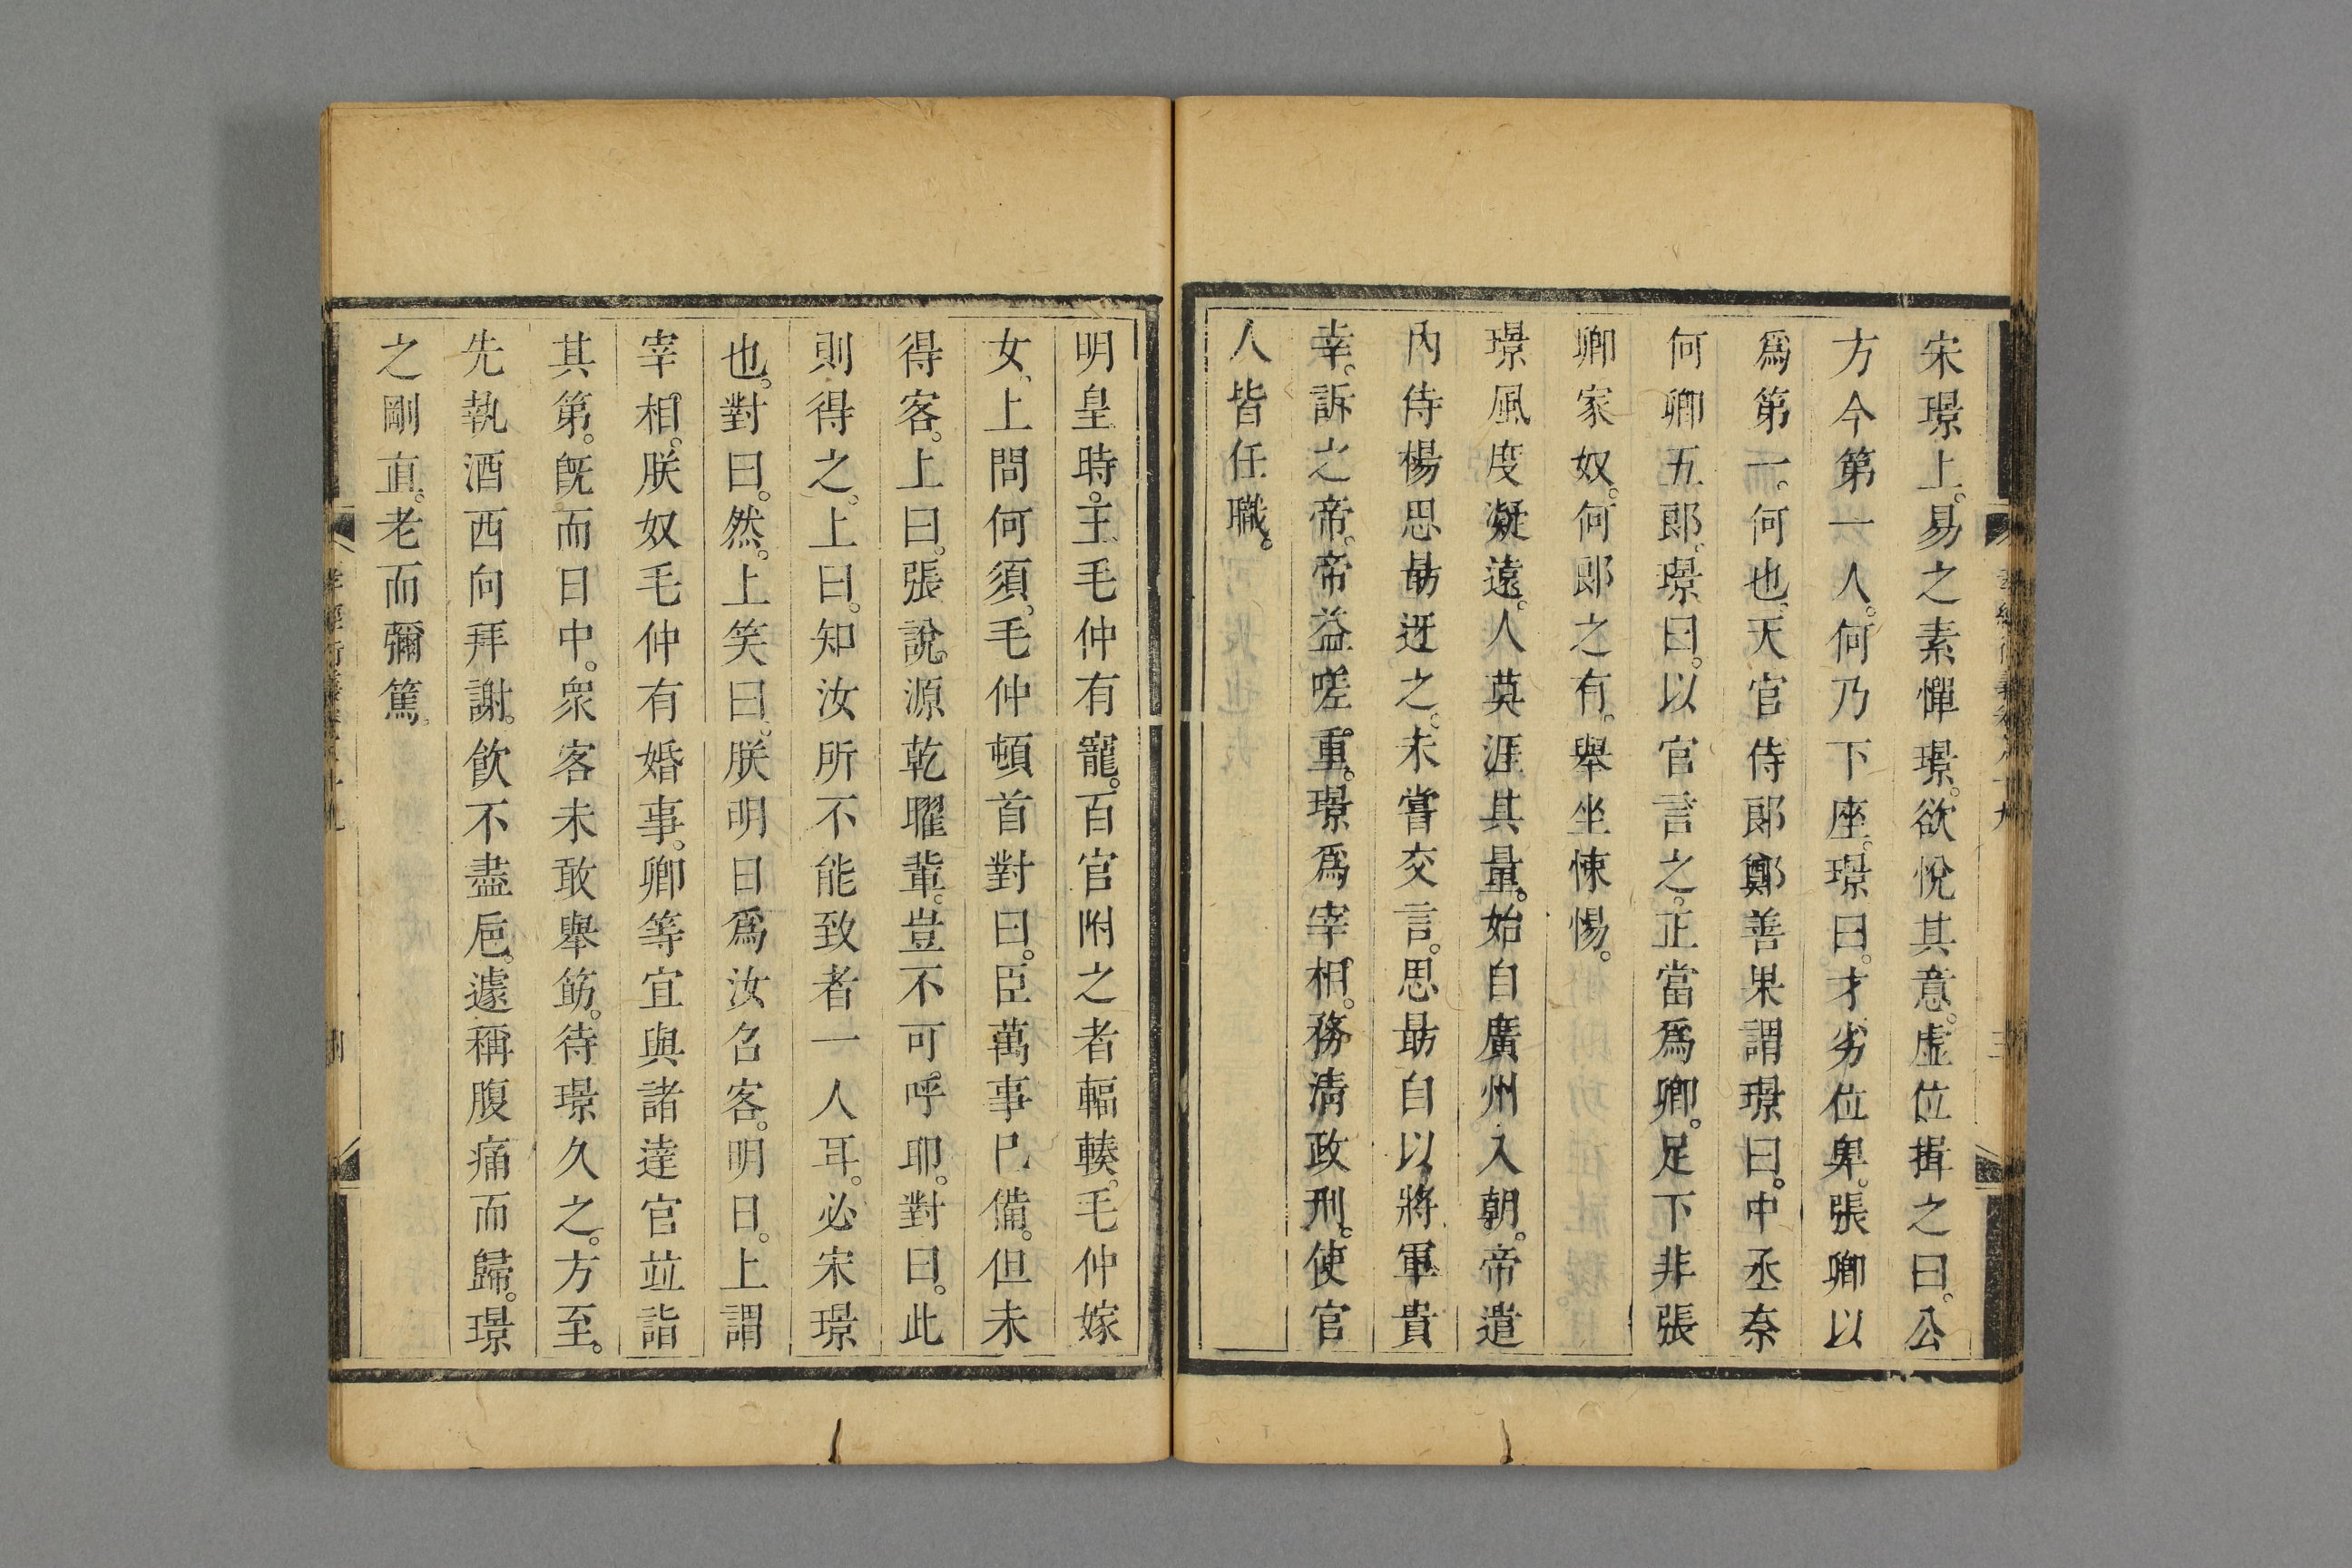 宋璟上。易之素憚璟。欲悅其意。虛位揖之曰。公
方今第一人。何乃下座。璟曰。才劣位卑。張卿以
爲第一。何也。天官侍郎鄭善果謂璟曰。中丞奈
何卿五郎。璟曰。以官言之。正當爲卿。足下非張
卿家奴。何郎之有。舉坐悚惕。
璟風度凝遠。人莫涯其量。始自廣州入朝。帝遣
內侍楊思勗迓之。未嘗交言。思勗自以將軍貴
幸。訴之帝。帝益嗟重。璟爲宰相。務淸政刑。使官
人皆任職。
明皇時。王毛仲有寵。百官附之者輻輳。毛仲嫁
女、上問何須。毛仲頓首對曰。臣萬事已備。但未
得客。上曰。張說。源乾曜輩。豈不可呼耶。對曰。此
則得之。上曰。知汝所不能致者一人耳。必宋璟
也。對曰。然。上笑曰。朕明日爲汝召客。明日。上謂
宰相。朕奴毛仲有婚事。卿等宜與諸達官竝詣
其第。旣而日中。眾客未敢舉筯。待璟久之。方至。
先執酒西向拜謝。飮不盡巵。遽稱腹痛而歸。璟
之剛直。老而彌篤。